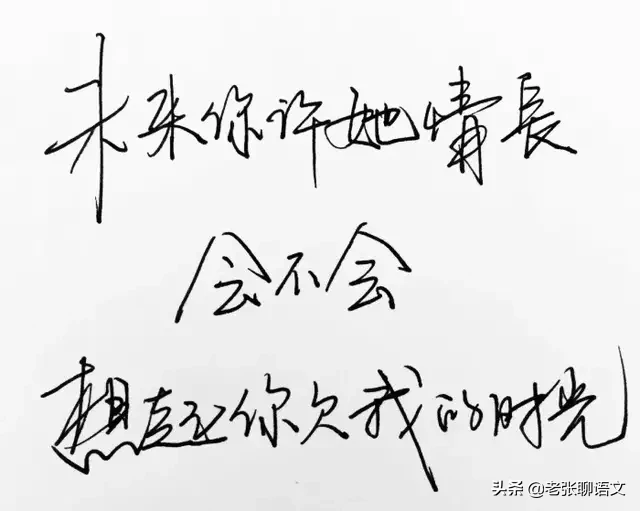 未来你许她情長
会不会
想起你欠我的时光
头条 @老张聊语文